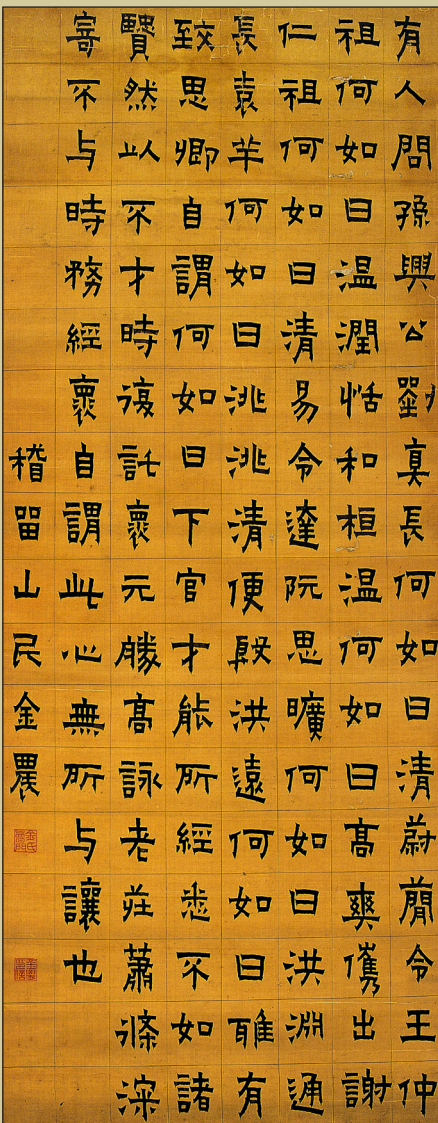 有人問孫興公劉真長何如曰清蔚蕳令王仲
祖何如曰温潤恬和桓温何如曰高爽儁出謝
仁祖何如曰清易令達阮思曠何如曰洪淵通
長袁羊何如曰洮洮清便殷洪遠何如曰雖有
致思卿自謂何如曰下官才能所經悉不如諸
賢然以不才時復託褱元勝高詠老莊蕭條深
寄不与時務經褱自謂此心無所与讓也
稽留山民金農